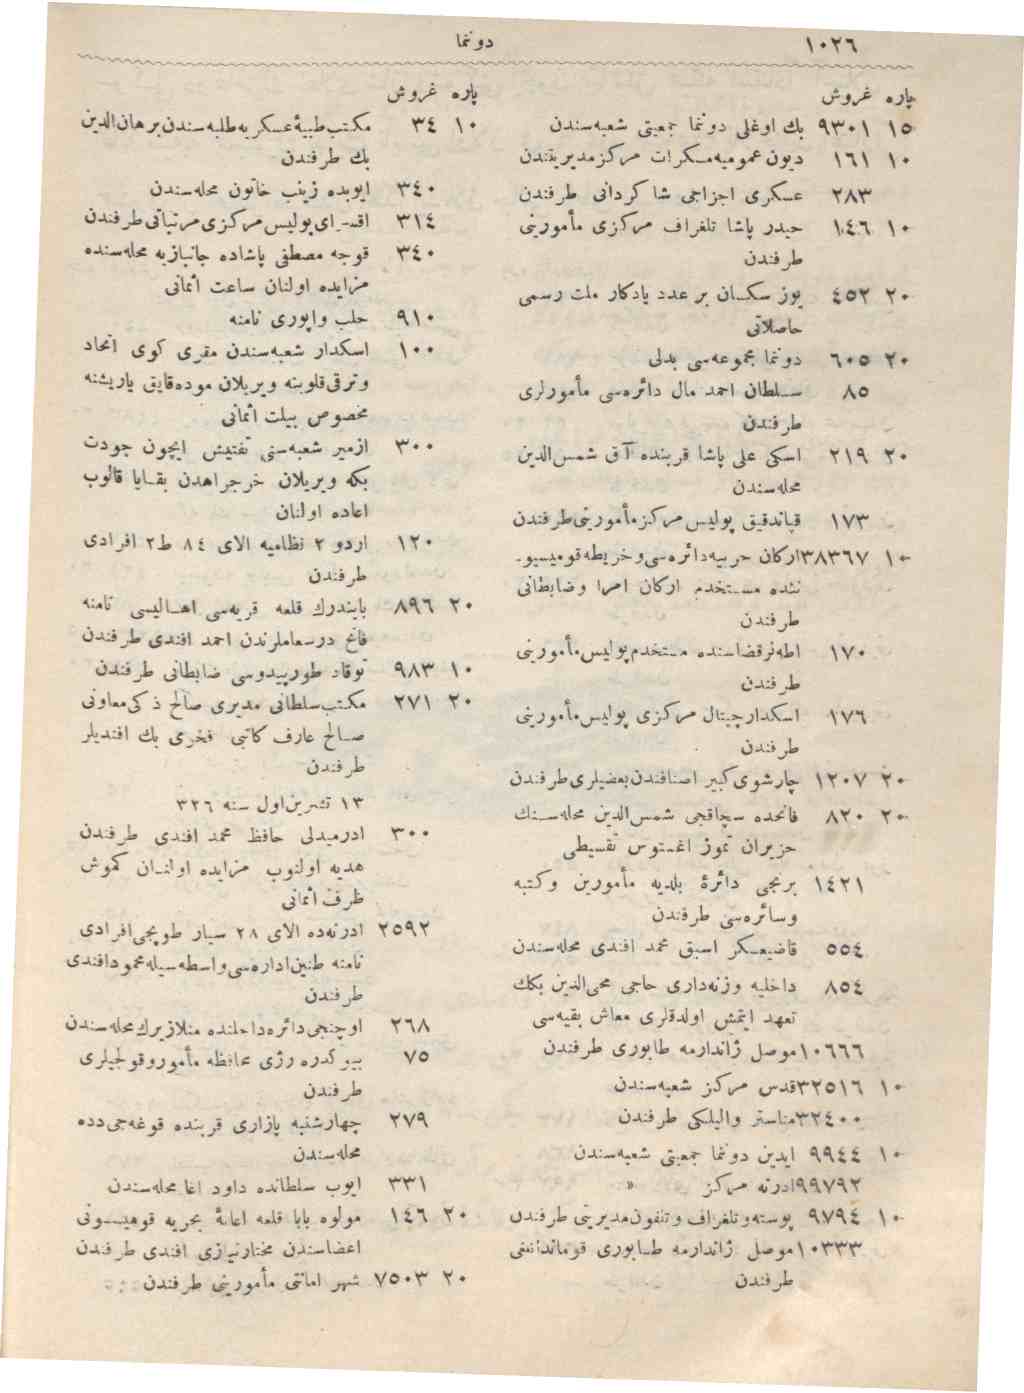 ١٠٢٦
دونما
پاره غروش
١٥ ٩٣٠١ بك اوغلی دونما جمعیتی شعبه‌سندن
١٠ ١٦١ دیون عمومیه مسكرات مركز مدیریتندن
٢٨٣ عسكری اجزاجی شا كردانی طرفندن
١٠ ١٤٦ حیدر پاشا تلغراف مركزی مأمورینی
طرفندن
٢٠ ٤٥٢ یوز سكسان بر عدد یادكار ملت رسمی
حاصلاتی
٢٠ ٦٠٥ دونما مجموعه‌سی بدلی
٨٥ سلطان احمد مال دائره‌سی مأمورلری
طرفندن
٢٠ ٢١٩ اسكی علی پاشا قربنده آق شمس‌الدین
محله‌سندن
١٧٣ قپاندقیق پولیس مركز مأمورینی طرفندن
١٠ ٣٨٣٦٧ اركان حربیه دائره‌سی و خریطه قومیسیو-
ننده مستخدم اركان امرا وضابطانی
طرفندن
١٧٠ اطه‌لر قضاسنده مستخدم پولیس مأمورینی
طرفندن
١٧٦ اسكدار چینال مركزی پولیس مأمورینی
طرفندن
٢٠ ١٢٠٧ چارشوی كبیر اصنافندن بعضیلری طرفندن
٢٠ ٨٢٠ فاتحده سچاقجی شمس‌الدین محله‌سنك
حزیران تموز اغستوس تقسیطی
١٤٢١ برنجی دائرۀ بلدیه مأمورین وكتبه
وسائره‌سی طرفندن
٥٥٤ قاضیعسكر اسبق محمد افندی محله‌سندن
٨٥٤ داخلیه وزنه‌داری حاجی محی‌الدین بكك
تعهد ایتمش اولدقلری معاش بقیه‌سی
١٠٦٦٦ موصل ژاندارمه طابوری طرفندن
١٠ ٣٢٥١٦ قدس مركز شعبه‌سندن
٣٢٤٠٠ مناستر والیلكی طرفندن
١٠ ٩٩٤٤ ایدین دونما جمعیتی شعبه‌سندن
٩٩٧٩٢ ادرنه مركز »
١٠ ٩٧٩٤ پوسته و تلغراف و تلفون مدیریتی طرفندن
١٠٣٣٣ موصل ژاندارمه طابوری قومانداننی
طرفندن
پاره غروش
١٠ ٣٤ مكتب طبیۀ عسكریه طلبه‌سندن برهان‌الدین
بك طرفندن
٣٤٠ ایوبده زینب خاتون محله‌سندن
٣١٤ اقسرای پولیس مركزی مرتباتی طرفندن
٣٤٠ قوجه مصطفی پاشاده جانبازیه محله‌سنده
مزایده اولنان ساعت اثمانی
٩١٠ حلب واپوری نامنه
١٠٠ اسكدار شعبه‌سندن مقری كوی اتحاد
وترقی قلوبنه ویریلان موده قایق یاریشنه
مخصوص بیلت اثمانی
٣٠٠ ازمیر شعبه‌سنی تفتیش ایچون جودت
بكه ویریلان خرجراهدن بقایا قالوب
اعاده اولنان
١٢٠ اردو ٢ نظامیه الای ٨٤ ط ٢ افرادی
طرفندن
٢٠ ٨٩٦ بایندرك قلعه قریه‌سی اهالیسی نامنه
فاتح درسعاملرندن احمد افندی طرفندن
١٠ ٩٨٣ توقاد طورپیدوسی ضابطانی طرفندن
٢٠ ٢٧١ مكتب سلطانی مدیری صالح ذكی معاونی
صالح عارف كاتبی فخری بك افندیلر
طرفندن
١٣ تشرین‌اول سنه ٣٢٦
٣٠٠ ادرمیدلی حافظ محمد افندی طرفندن
هدیه اولنوب مزایده اولنان كموش
ظرف اثمانی
٢٥٩٢ ادرنه‌ده الای ٢٨ سیار طوپجی افرادی
نامنه طنین اداره‌سی واسطه‌سیله محمود افندی
طرفندن
٢٦٨ اوچنجی دائره داخلنده منلازیرك محله‌سندن
٧٥ بیوكدره رژی محافظه مأمور و قولجیلری
طرفندن
٢٧٩ چهارشنبه پازاری قربنده قوغه‌جی دده
محله‌سندن
٣٣١ ایوب سلطانده داود اغا محله‌سندن
٢٠ ١٤٦ مولوه بابا قلعه اعانۀ بحریه قومیسیونی
اعضاسندن مختار نیازی افندی طرفندن
٢٠ ٧٥٠٣ شهر امانتی مأمورینی طرفندن